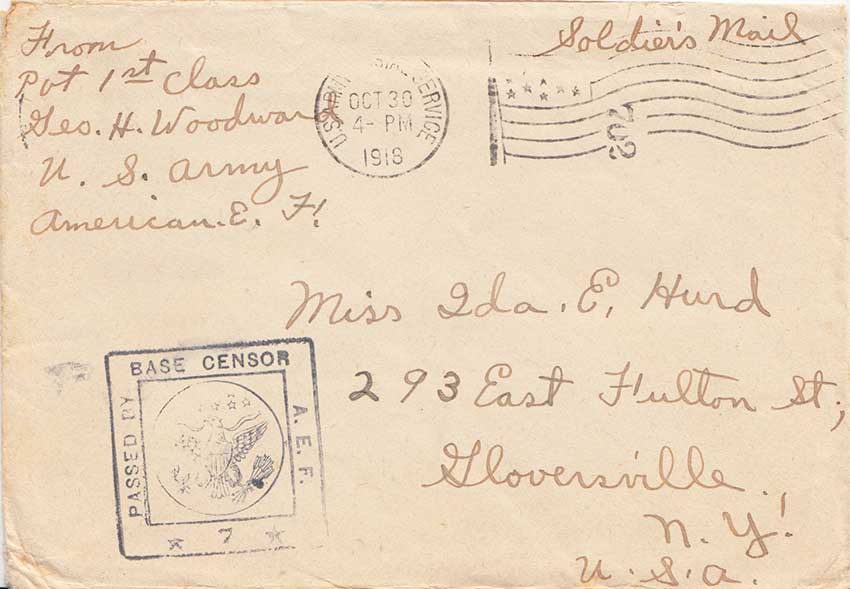 From
Pvt 1st Class
Geo. H. Woodward
U. S. Army
American. E. F.
U.S. ARMY POSTAL SERVICE
OCT 30
4- PM
1918
Soldier's Mail
702
Miss Ida. E. Hurd
293 East Fulton St;
Gloversville.,
N. Y.
U. S. a.
PASSED BY
BASE CENSOR
A. E. F.
7